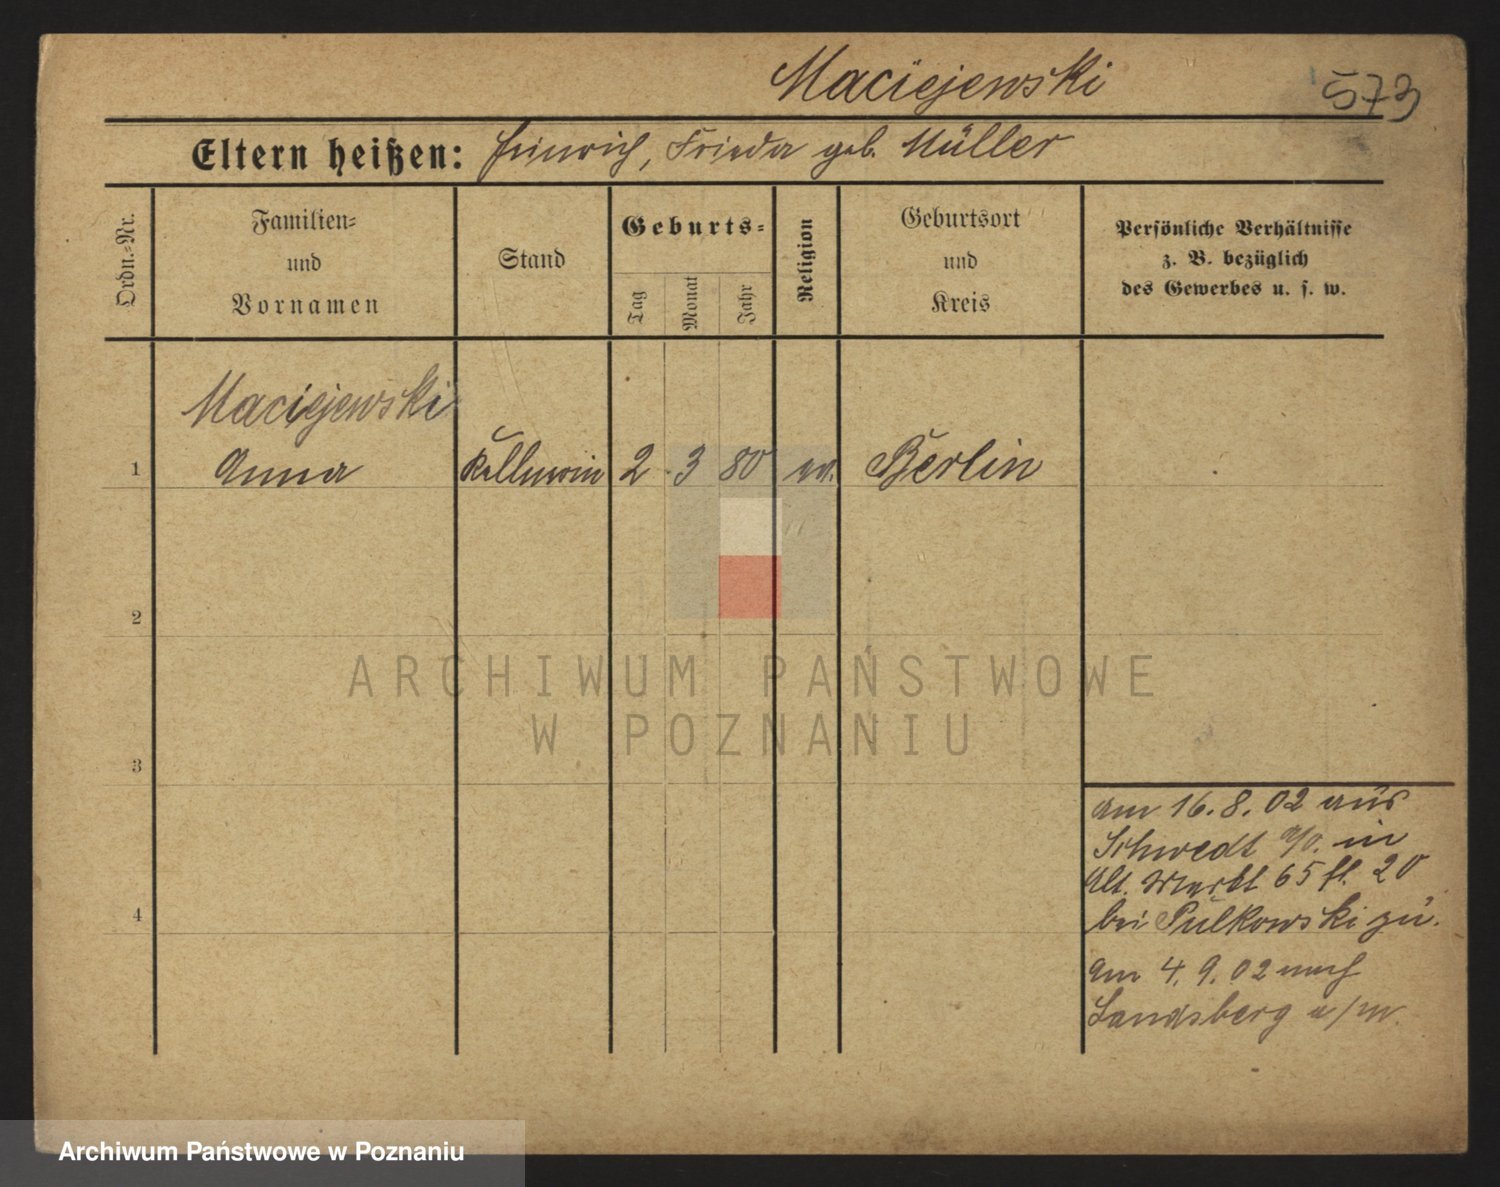 Maciejewski 573
Eltern heißen: Heinrich, Frieda geb. Müller
Ordn.=Nr.
Familien=
und
Vornamen
Stand
Geburts=
Tag
Monat
Jahr
Religion
Geburtsort
und
Kreis
Persönliche Verhältnisse
z. B. bezüglich
des Gewerbes u. s. w.
Maciejewski
1 Anna Kellnerin 2 3 80 ev. Berlin
2
3
4
am 16.8.02 aus
Schwedt a/o. in
Alt. Markt 65 fl. 20
bei Pulkowski zu.
am 4.9.02 nach
Landsberg a/W.
ARCHIWUM PAŃSTWOWE
W POZNANIU
Archiwum Państwowe w Poznaniu